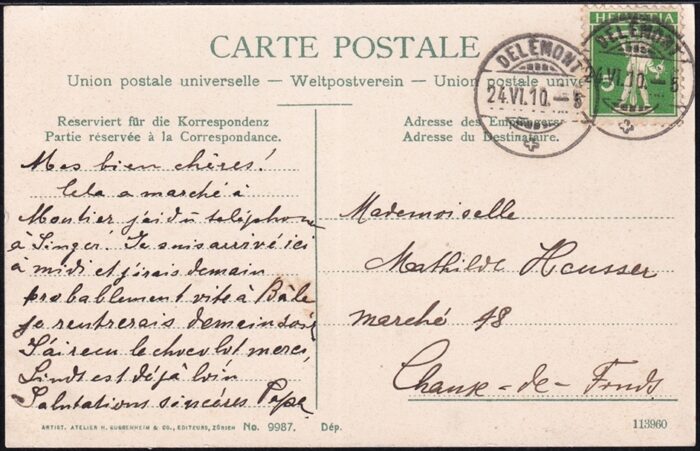 CARTE POSTALE
Union postale universelle — Weltpostverein — Union postale unive
Reserviert für die Korrespondenz
Partie réservée à la Correspondance.
Mes bien chères!
Cela a marché à
Moutier j'ai dû téléphone
à Singer. Je suis arrivé ici
à midi et j'irais demain
probablement vite à Bâle
je rentrerais demain soir
J'ai reçu le chocolat merci,
Lindt est déjà loin
Salutations sincères Papa
HELVETIA
5
DELÉMONT
24.VI.10.–5
DELÉMONT
24.VI.10.–5
Adresse des Empfängers.
Adresse du Destinataire.
Mademoiselle
Mathilde Housser
marché 48
Chaux-de-Fonds
ARTIST. ATELIER H. GUGGENHEIM & CO., EDITEURS, ZÜRICH No. 9987. Dép.
113960